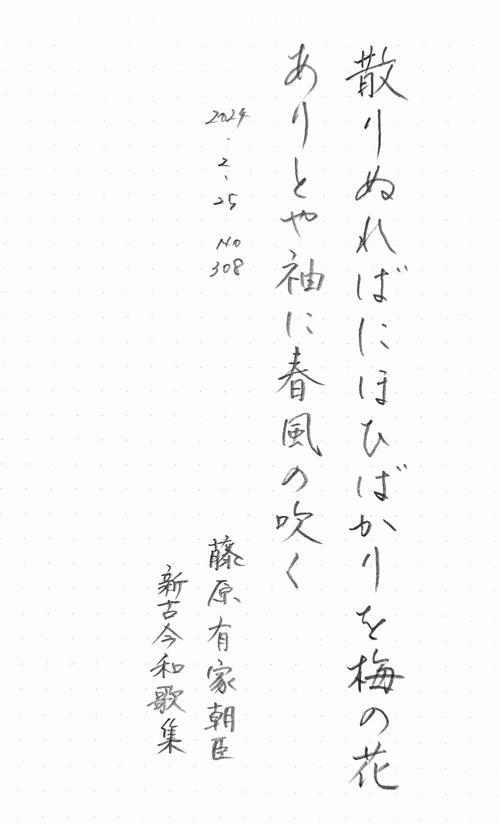 散りぬればにほひばかりを梅の花
ありとや袖に春風の吹く
2024.2.25 No308
藤原有家朝臣
新古今和歌集